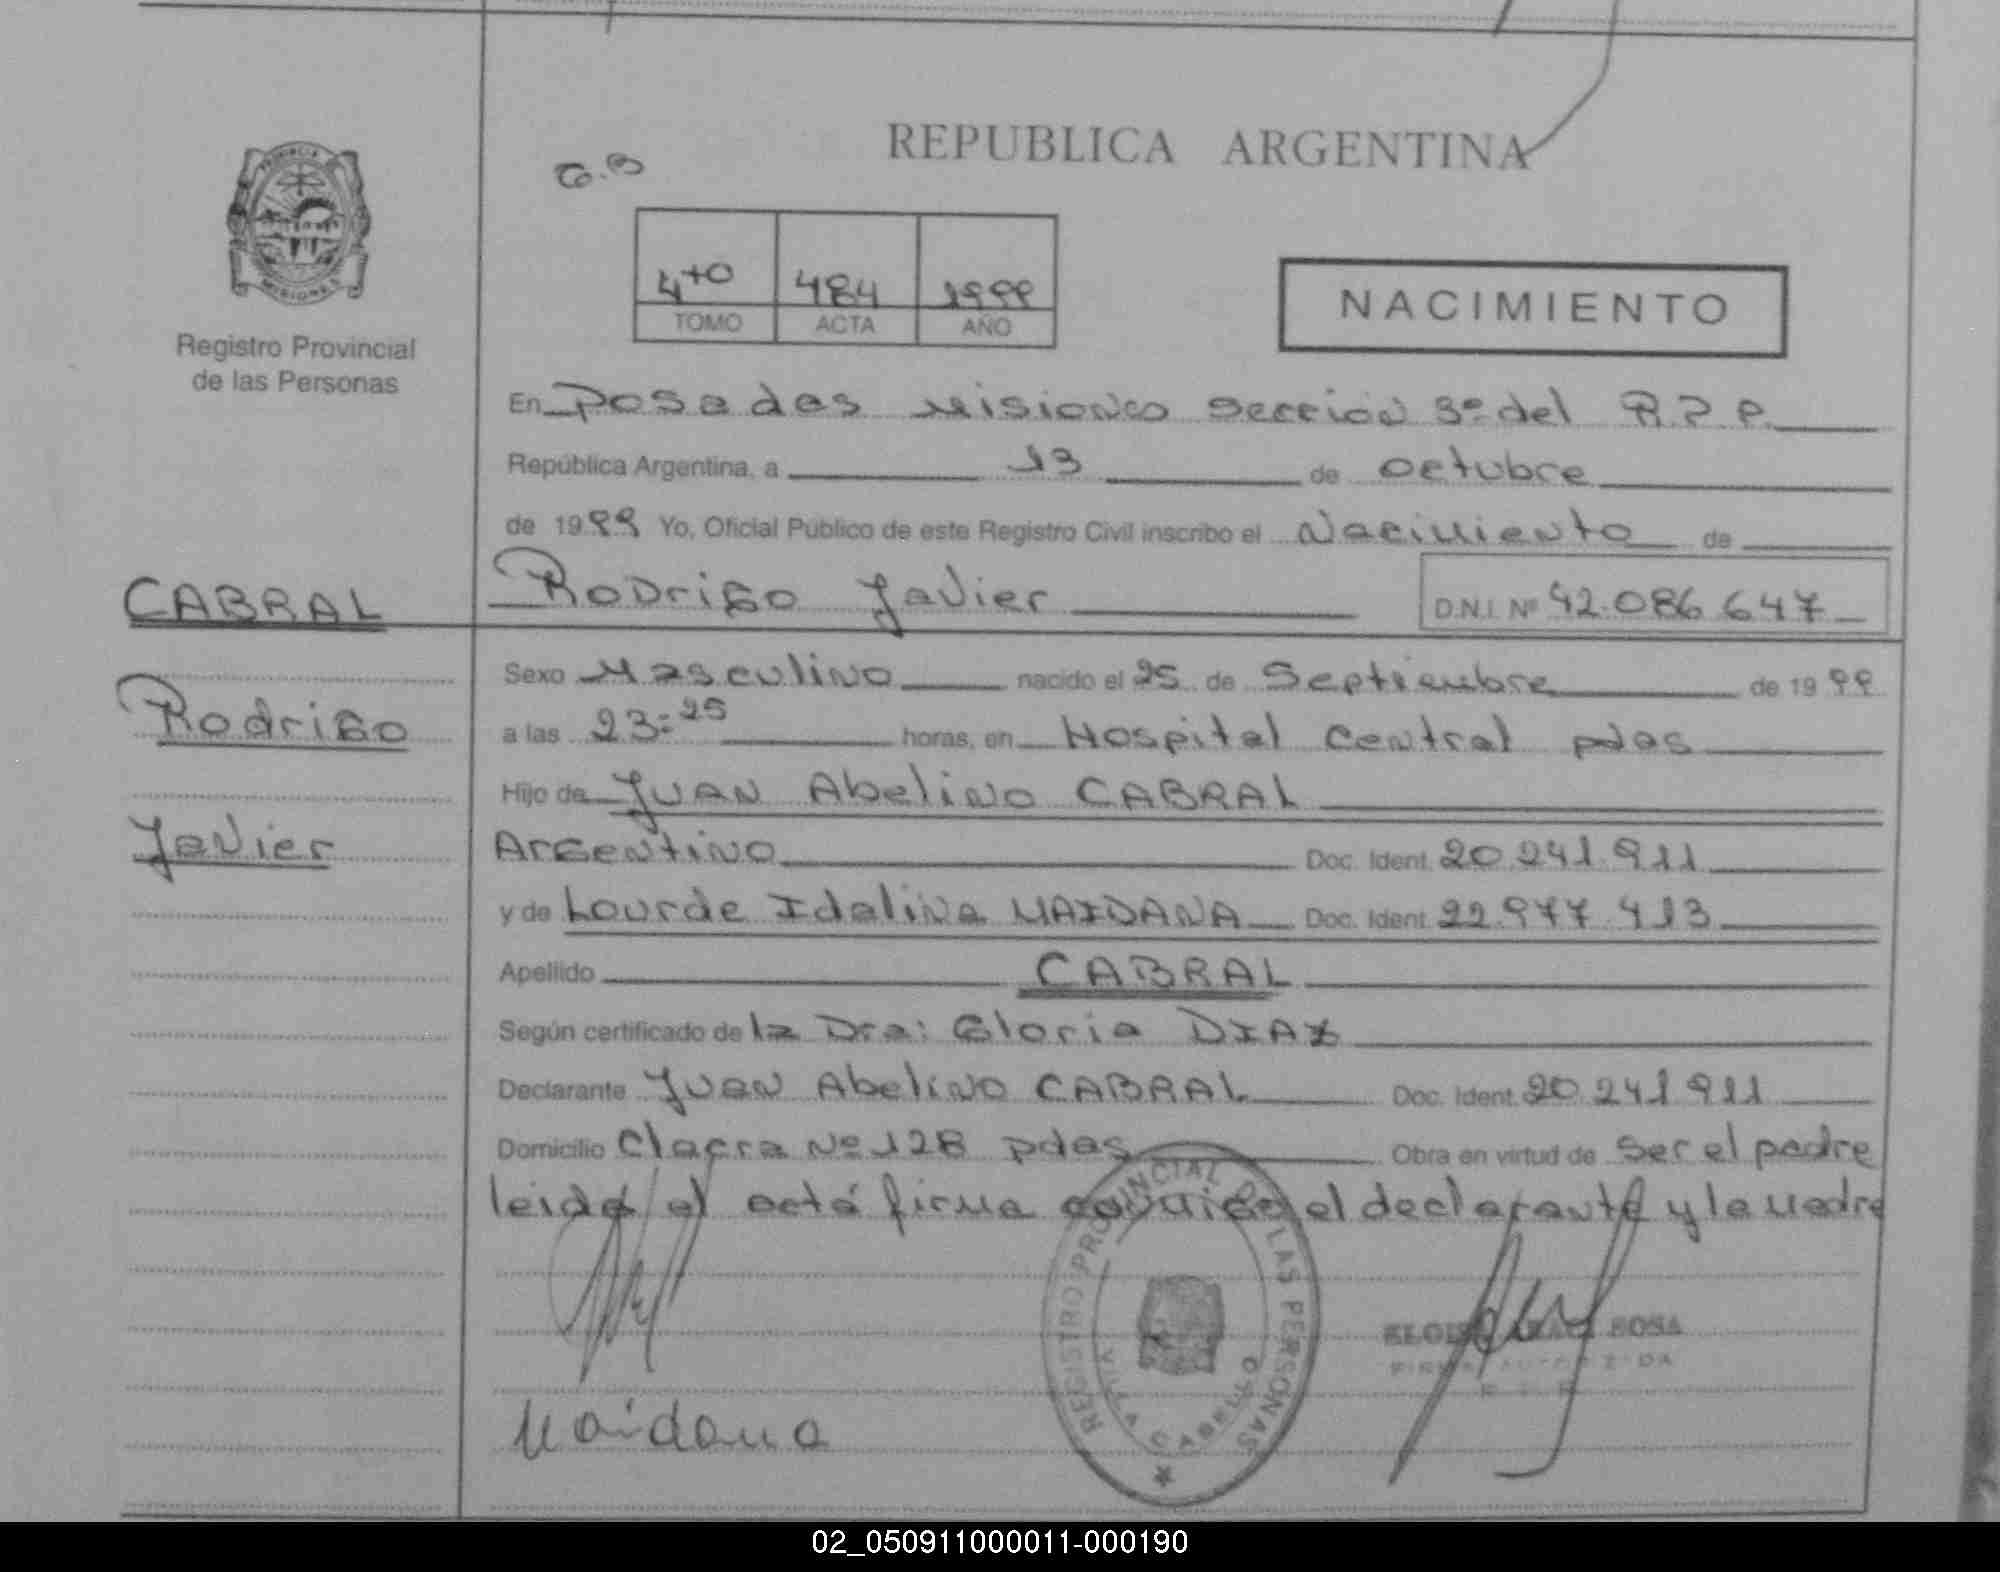 REPUBLICA ARGENTINA
G.B
PROVINCIA
MISIONES
4to 484 1999
TOMO ACTA AÑO
NACIMIENTO
Registro Provincial
de las Personas
En Posadas Misiones Sección 3º del R.P.P.
República Argentina, a 13 de octubre
de 1999 Yo, Oficial Público de este Registro Civil inscribo el Nacimiento de
CABRAL Rodrigo Javier D.N.I. Nº 42.086.647
Sexo Masculino nacido el 25 de Septiembre de 1999
Rodrigo
a las 23:25 horas, en Hospital Central pdas
Hijo de Juan Abelino CABRAL
Javier
Argentino Doc. Ident. 20.241.911
y de Lourde Idalina MAIDANA Doc. Ident. 22.977.413
Apellido CABRAL
Según certificado de la Dra: Gloria DIAZ
Declarante Juan Abelino CABRAL Doc. Ident. 20.241.911
Domicilio Chacra Nº 128 pdas Obra en virtud de ser el padre
leida el acta firma conmigo el declarante y la madre
REGISTRO PROVINCIAL DE LAS PERSONAS
VILLA CABELLO
ROSA
FIRMA AUTORIZADA
Maidana
02_050911000011-000190